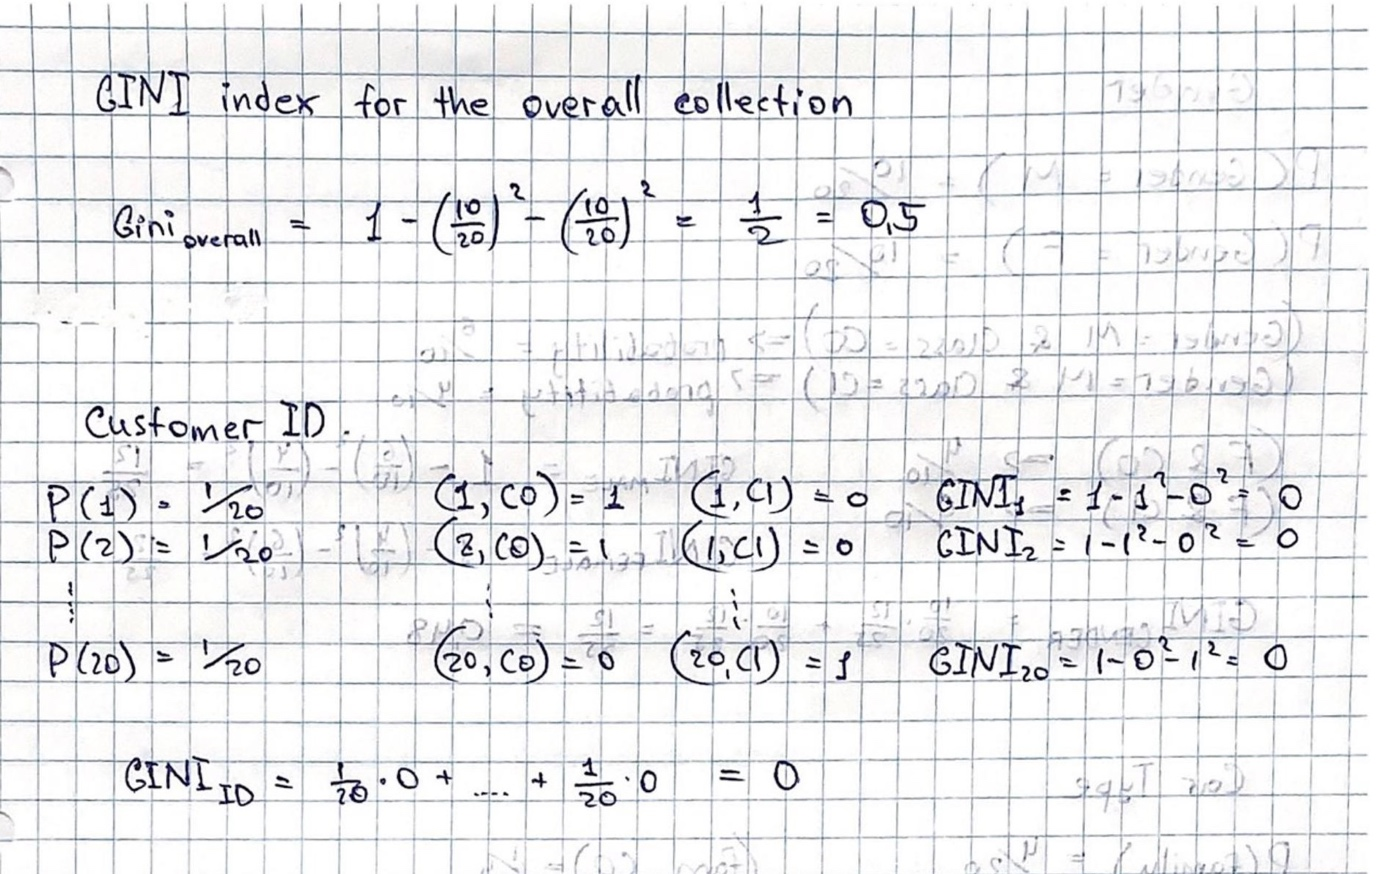 GINI index for the overall collection
Gini overall = 1 - (10/20)² - (10/20)² = 1/2 = 0,5
Customer ID.
P(1) = 1/20 (1, C0) = 1 (1, C1) = 0 GINI₁ = 1 - 1² - 0² = 0
P(2) = 1/20 (2, C0) = 1 (1, C1) = 0 GINI₂ = 1 - 1² - 0² = 0
⋮ ⋮ ⋮
P(20) = 1/20 (20, C0) = 0 (20, C1) = 1 GINI₂₀ = 1 - 0² - 1² = 0
GINI ID = 1/20 · 0 + .... + 1/20 · 0 = 0